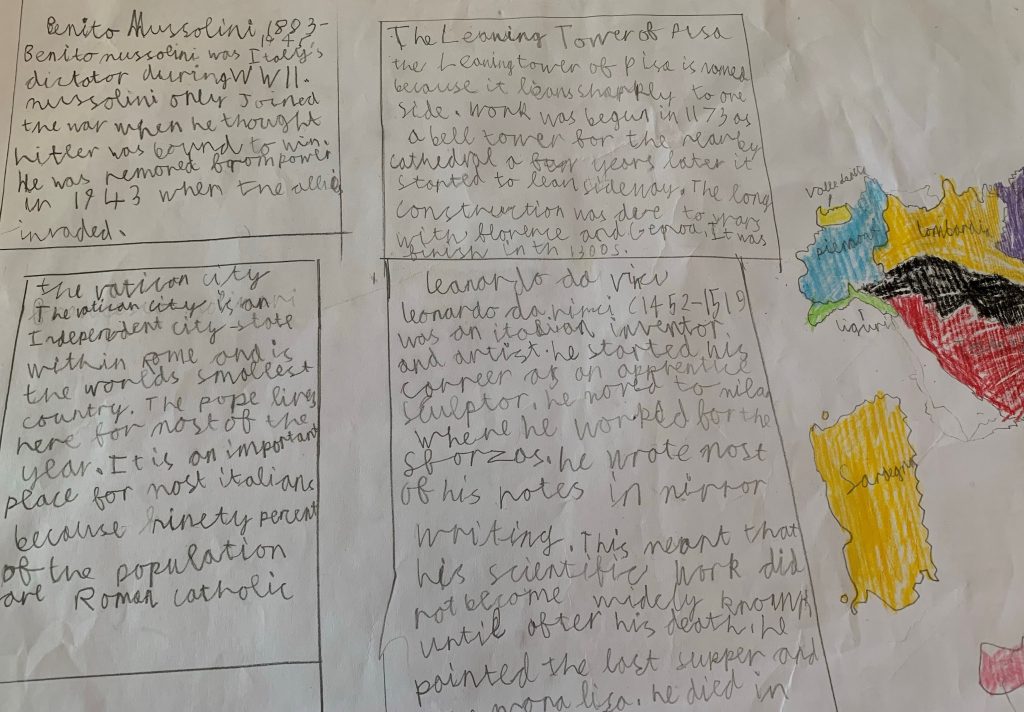 Benito Mussolini 1883-
1945
Benito mussolini was Itally's
dictator during WWII.
mussolini only Joined
the war when he thought
hitler was bound to win.
He was removed from power
in 1943 when the allies
invaded.
The Leaning Tower of Pisa
the Leaning tower of Pisa is named
because it leans sharply to one
side. work was begun in 1173 as
a bell tower for the nearby
cathedral a few years later it
started to lean sideway. The long
construction was due to wars
with florence and Genoa. It was
finish in th 1300s.
the vatican city
The vatican city is an
Independent city-state
within Rome and is
the worlds smallest
country. The pope lives
here for most of the
year. It is an important
place for most italians
because ninety percent
of the population
are Roman catholic
leonardo da vinci
leonardo da vinci (1452-1519
was an italian inventor
and artist. he started his
carreer as an apprentice
sculptor. he moved to milan
where he worked for the
sforzas. he wrote most
of his notes in mirror
writing. This meant that
his scientific work did
not become widely known
until after his death. he
painted the last supper and
mona lisa. he died in
piemont
lombardia
liguria
Saregna